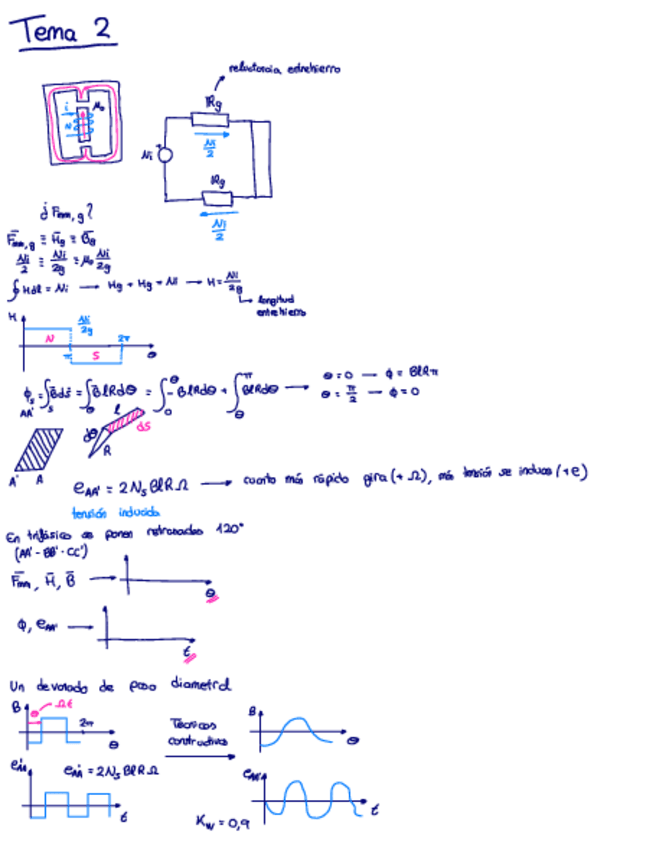 Tema 2
reluctancia entrehierro
i
N
μ₀
Rg
Ni/2
Ni
Rg
Ni/2
¿ Fmm,g ?
F̄mm,g ≡ H̄g ≡ B̄g
Ni/2 ≡ Ni/2g = μ₀ Ni/2g
∮ H dl = Ni → Hg + Hg = Ni → H = Ni/2g
longitud entrehierro
H
Ni/2g
N
π
S
2π
θ
ϕs AA' = ∫s B̄ds̄ = ∫θ BlRdθ = ∫₀^θ -BlRdθ + ∫θ^π BlRdθ →
θ = 0 — ϕ = BlRπ
θ = π/2 — ϕ = 0
l
dθ
ds
R
A' A
eAA' = 2NsBlRΩ → cuanto más rápido gira (+Ω), más tensión se induce (+e)
tensión inducida
En trifásico se ponen retrasados 120°
(AA' - BB' - CC')
F̄mm, H̄, B̄ →
θ
ϕ, eAA' →
t
Un devanado de paso diametral
B
θ
Ωt
2π
θ
Técnicas constructivas
B
θ
eAA'
eAA' = 2NsBlRΩ
t
eAA'
t
Kw = 0,9